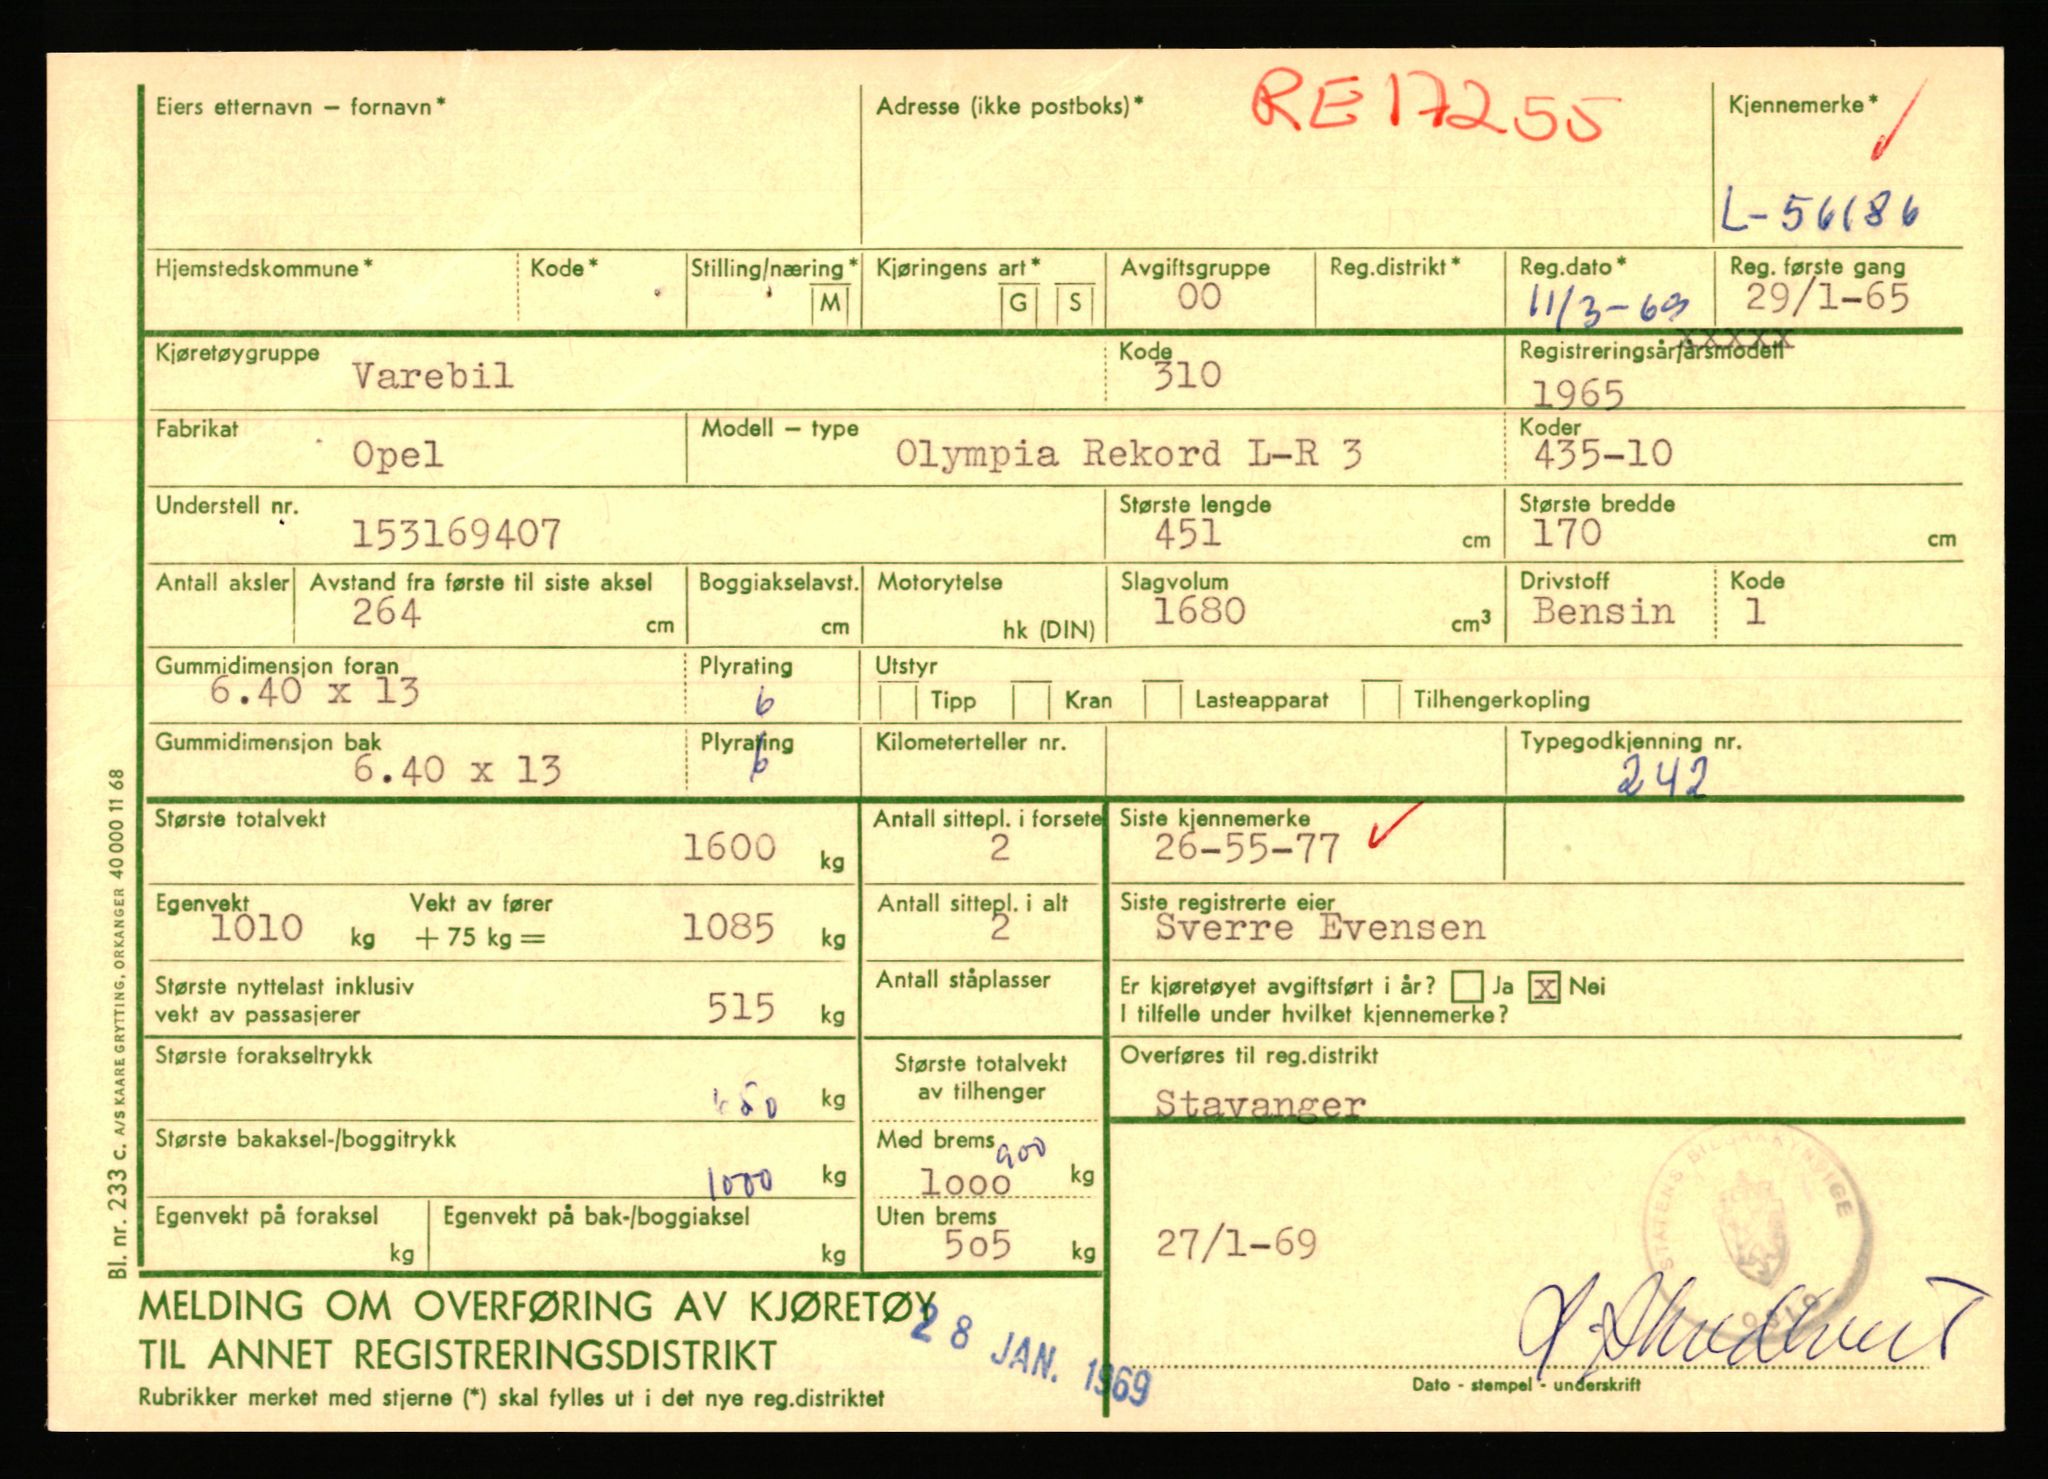 RE17255
Eiers etternavn – fornavn*
Adresse (ikke postboks)*
Kjennemerke*
L-56186
Hjemstedskommune*
Kode*
Stilling/næring*
M
Kjøringens art*
G
S
Avgiftsgruppe
00
Reg.distrikt*
Reg.dato*
11/3-69
Reg. første gang
29/1-65
Kjøretøygruppe
Varebil
Kode
310
Registreringsår/årsmodell
xxxxx
1965
Fabrikat
Opel
Modell – type
Olympia Rekord L-R 3
Koder
435-10
Understell nr.
153169407
Største lengde
451 cm
Største bredde
170 cm
Antall aksler
Avstand fra første til siste aksel
264 cm
Boggiakselavst.
cm
Motorytelse
hk (DIN)
Slagvolum
1680 cm³
Drivstoff
Bensin
Kode
1
Gummidimensjon foran
6.40 x 13
Plyrating
6
Utstyr
Tipp
Kran
Lasteapparat
Tilhengerkopling
Gummidimensjon bak
6.40 x 13
Plyrating
6
Kilometerteller nr.
Typegodkjenning nr.
242
Største totalvekt
1600 kg
Antall sittepl. i forsete
2
Siste kjennemerke
26-55-77
Egenvekt
1010 kg
Vekt av fører
+ 75 kg =
1085 kg
Antall sittepl. i alt
2
Siste registrerte eier
Sverre Evensen
Største nyttelast inklusiv
vekt av passasjerer
515 kg
Antall ståplasser
Er kjøretøyet avgiftsført i år? Ja x Nei
I tilfelle under hvilket kjennemerke?
Største forakseltrykk
kg
Største totalvekt
av tilhenger
Overføres til reg.distrikt
Stavanger
Største bakaksel-/boggitrykk
1000 kg
Med brems
900
1000 kg
Egenvekt på foraksel
kg
Egenvekt på bak-/boggiaksel
kg
Uten brems
505 kg
27/1-69
STATENS BILSAKKYNDIGE
OSLO
MELDING OM OVERFØRING AV KJØRETØY
TIL ANNET REGISTRERINGSDISTRIKT
28 JAN. 1969
Rubrikker merket med stjerne (*) skal fylles ut i det nye reg.distriktet
Dato - stempel - underskrift
Bl. nr. 233 c. A/S KAARE GRYTTING, ORKANGER 40 000 11 68